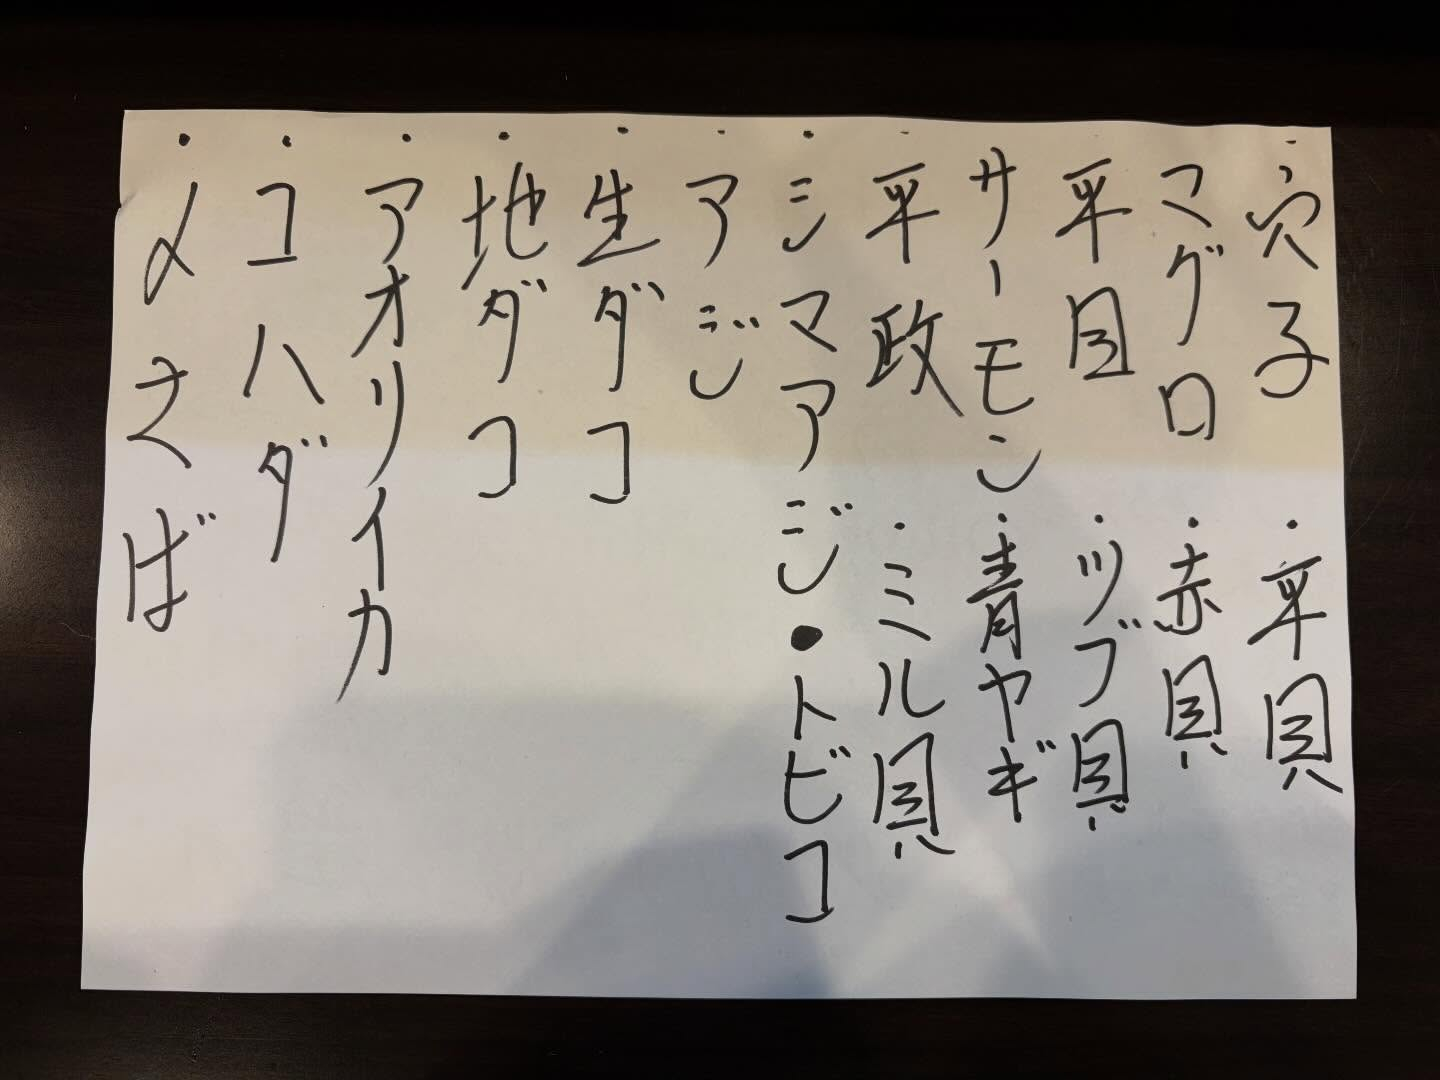 ・穴子 ・平貝
マグロ ・赤貝
平目 ・ツブ貝
サーモン ・青ヤギ
・平政 ・ミル貝
・シマアジ ・トビコ
・アジ
・生ダコ
・地ダコ
・アオリイカ
・コハダ
・〆さば